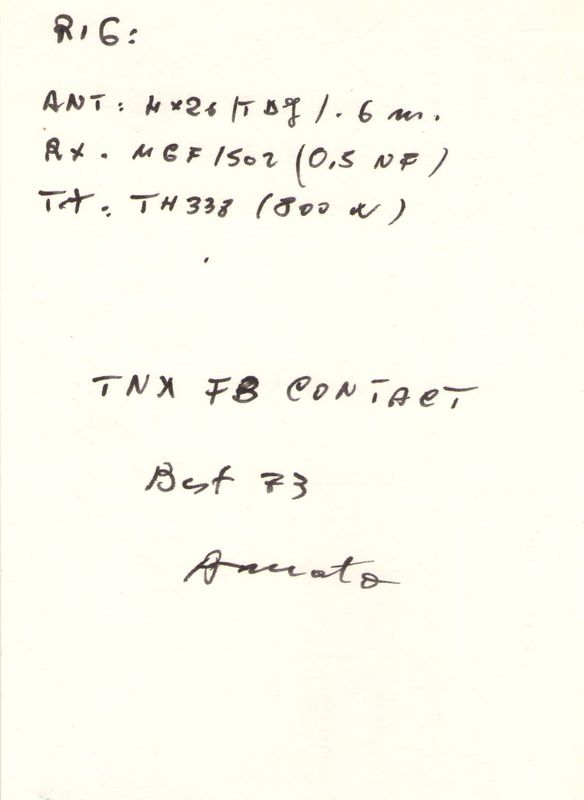 RIG:
ANT: 4x26 /. 6 m.
RX. MGF 1502 (0,5 NF)
TX. TH338 (800 W)
TNX FB CONTACT
Best 73